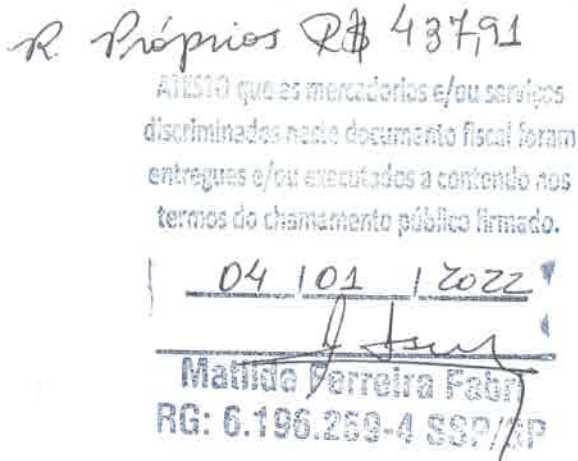 R. Próprios R$ 437,91
ATESTO que as mercadorias e/ou serviços
discriminados neste documento fiscal foram
entregues e/ou executados a contendo nos
termos do chamamento público firmado.
04 / 01 / 2022
Matilde Ferreira Fabri
RG: 6.196.259-4 SSP/SP